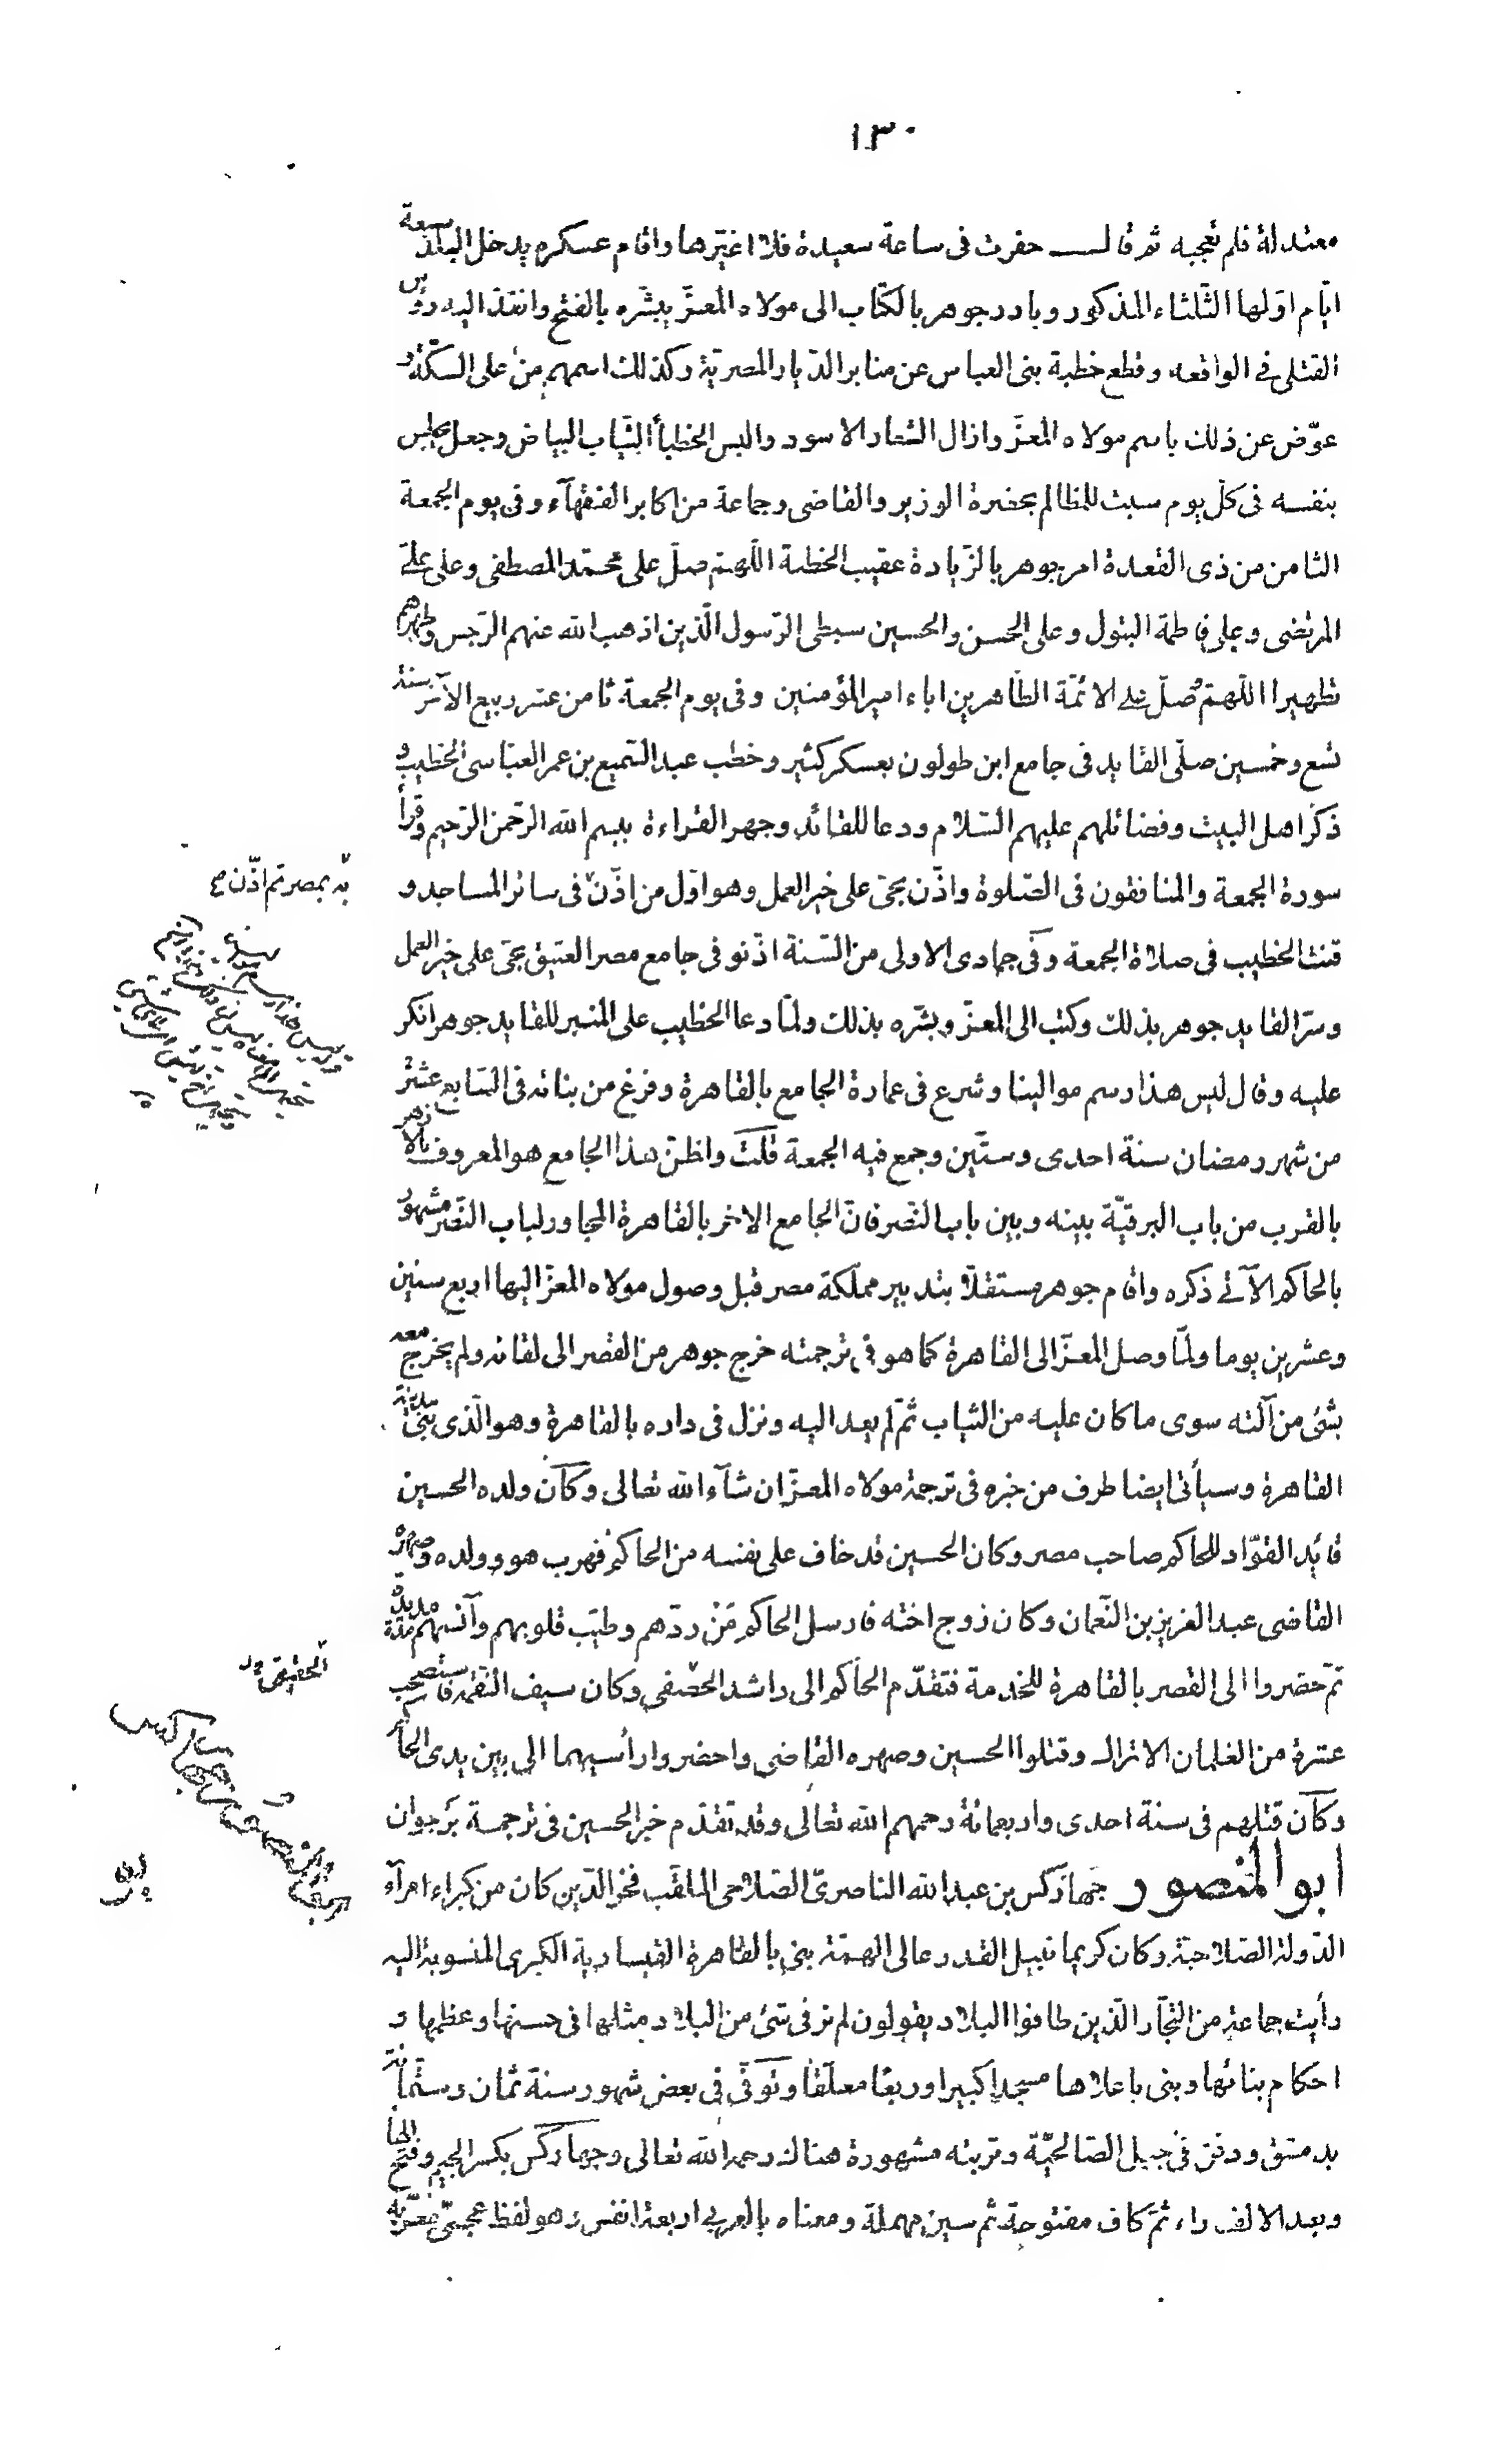 ١٣٠
معتدلة فلم تعجبه ثم قال حفرت فى ساعة سعيدة فلا اغيّرها واقام عسكره يدخل البلد سبعة
ايّام اوّلها الثّلثاء المذكور وبادر جوهر بالكتاب الى مولاه المعزّ يبشّره بالفتح وانفذ اليه رؤس
القتلى فى الواقعه وقطع خطبة بنى العباس عن منابر الديار المصريّة وكذلك اسمهم من على السكّة و
عوّض عن ذلك باسم مولاه المعزّ وازال الشعار الاسود والبس الخطبأ الثّياب البياض وجعل يجلس
بنفسه فى كلّ يوم سبت للمظالم بحضرة الوزير والقاضى وجماعة من اكابر الفقهآء وفى يوم الجمعة
الثامن من ذى القعدة امر جوهر بالزّيادة عقيب الخطبة اللّهمّ صلّ على محمّد المصطفى وعلى علىّ
المرتضى وعلى فاطمة البتول وعلى الحسن والحسين سبطى الرّسول الّذين اذهب الله عنهم الرّجس وطهرهم
تطهيرا اللّهمّ صلّ على الائمّة الطّاهرين اباء امير المؤمنين وفى يوم الجمعة ثامن عشر ربيع الآخر سنة
تسع وخمسين صلّى القايد فى جامع ابن طولون بعسكر كثير وخطب عبد السّميع بن عمر العبّاسى الخطيب و
ذكر اهل البيت وفضائلهم عليهم السّلام ودعا للقائد وجهر القراءة ببسم الله الرّحمن الرّحيم وقرأ
سورة الجمعة والمنافقون فى الصّلوة واذّن بحىّ على خير العمل وهو اوّل من اذّن فى سائر المساجد و
به بمصر ثم اذّن
قنت الخطيب فى صلاة الجمعة وفى جمادى الاولى من السّنة اذّنو فى جامع مصر العتيق بحىّ على خير العمل
وسرّ القايد جوهر بذلك وكتب الى المعزّ وبشّره بذلك ولمّا دعا الخطيب على المنبر للقايد جوهر انكر
عليه وقال ليس هذا رسم موالينا وشرع فى عمارة الجامع بالقاهرة وفرغ من بنائه فى السّابع عشر
من شهر رمضان سنة احدى وستّين وجمع فيه الجمعة قلت واظنّ هذا الجامع هو المعروف بالازهر
بالقرب من باب البرقيّة بينه وبين باب النّصر فانّ الجامع الاخر بالقاهرة المجاور لباب النّصر مشهور
بالحاكم الآتى ذكره واقام جوهر مستقلّا بتدبير مملكة مصر قبل وصول مولاه المعزّ اليها اربع سنين
وعشرين يوما ولمّا وصل المعزّ الى القاهرة كما هو فى ترجمته خرج جوهر من القصر الى لقائه ولم يخرج معه
بشئ من آلته سوى ما كان عليه من الثياب ثمّ لم يعد اليه ونزل فى داره بالقاهرة وهو الّذى بنى مدينة
القاهرة وسيأتى ايضا طرف من خبره فى ترجمة مولاه المعزّ ان شآء الله تعالى وكان ولده الحسين
قايد القوّاد للحاكم صاحب مصر وكان الحسين قد خاف على نفسه من الحاكم فهرب هو وولده وصهره
القاضى عبد العزيز بن النّعمان وكان زوج اخته فارسل الحاكم مَنْ ردّهم وطيّب قلوبهم وآنسهم مدّة مديدة
ثمّ حضروا الى القصر بالقاهرة للخدمة فتقدّم الحاكم الى راشد الحصفى وكان سيف النّقمة فاستصحب
الحقيقى
عشرة من الغلمان الاتراك وقتلوا الحسين وصهره القاضى واحضروا رأسيهما الى بين يدى الحا
وكان قتلهم فى سنة احدى واربعمائة رحمهم الله تعالى وقد تقدّم خبر الحسين فى ترجمة برجوان
ابو المنصور جهاركس بن عبد الله الناصرىّ الصّلاحى الملقّب فخر الدّين كان من كبراء امرآء
ابو المنصور جهاركس
الدّولة الصّلاحيّة وكان كريما نبيل القدر عالى الهمّة بنى بالقاهرة القيسارية الكبرى المنسوبة اليه
رأيت جماعة من التجّار الّذين طافوا البلاد يقولون لم نر فى شئ من البلاد مثلها فى حسنها وعظمها و
احكام بنائها وبنى باعلاها مسجدا كبيرا وربعًا معلّقا وتوفّى فى بعض شهور سنة ثمان وستّمائة
بدمشق ودفن فى جبل الصّالحيّة وتربته مشهورة هناك رحمه الله تعالى وجهاركس بكسر الجيم وفتح الها
وبعد الالف راء ثمّ كاف مفتوحة ثم سين مهملة ومعناه بالعربى اربعة انفس وهو لفظ عجمىّ معرّبه